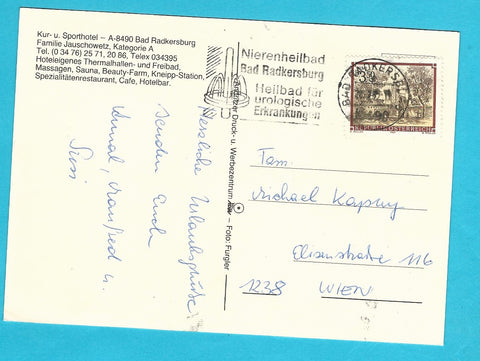 Kur- u. Sporthotel – A-8490 Bad Radkersburg
Familie Jauschowetz, Kategorie A
Tel. (0 34 76) 25 71, 20 86, Telex 034395
Hoteleigenes Thermalhallen- und Freibad,
Massagen, Sauna, Beauty-Farm, Kneipp-Station,
Spezialitätenrestaurant, Cafe, Hotelbar.
Herzliche Urlaubsgrüße
senden Euch
Manfred u.
Susi
Druck- u. Werbezentrum
Foto: Furgler
Nierenheilbad
Bad Radkersburg
Heilbad für
urologische
Erkrankungen
BAD RADKERSBURG
8490
REPUBLIK ÖSTERREICH
Fam.
Michael
Elisenstraße 116
1238 WIEN